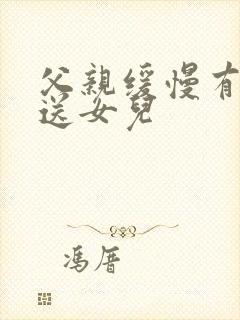 父親缓慢有
送女兒
馮厝